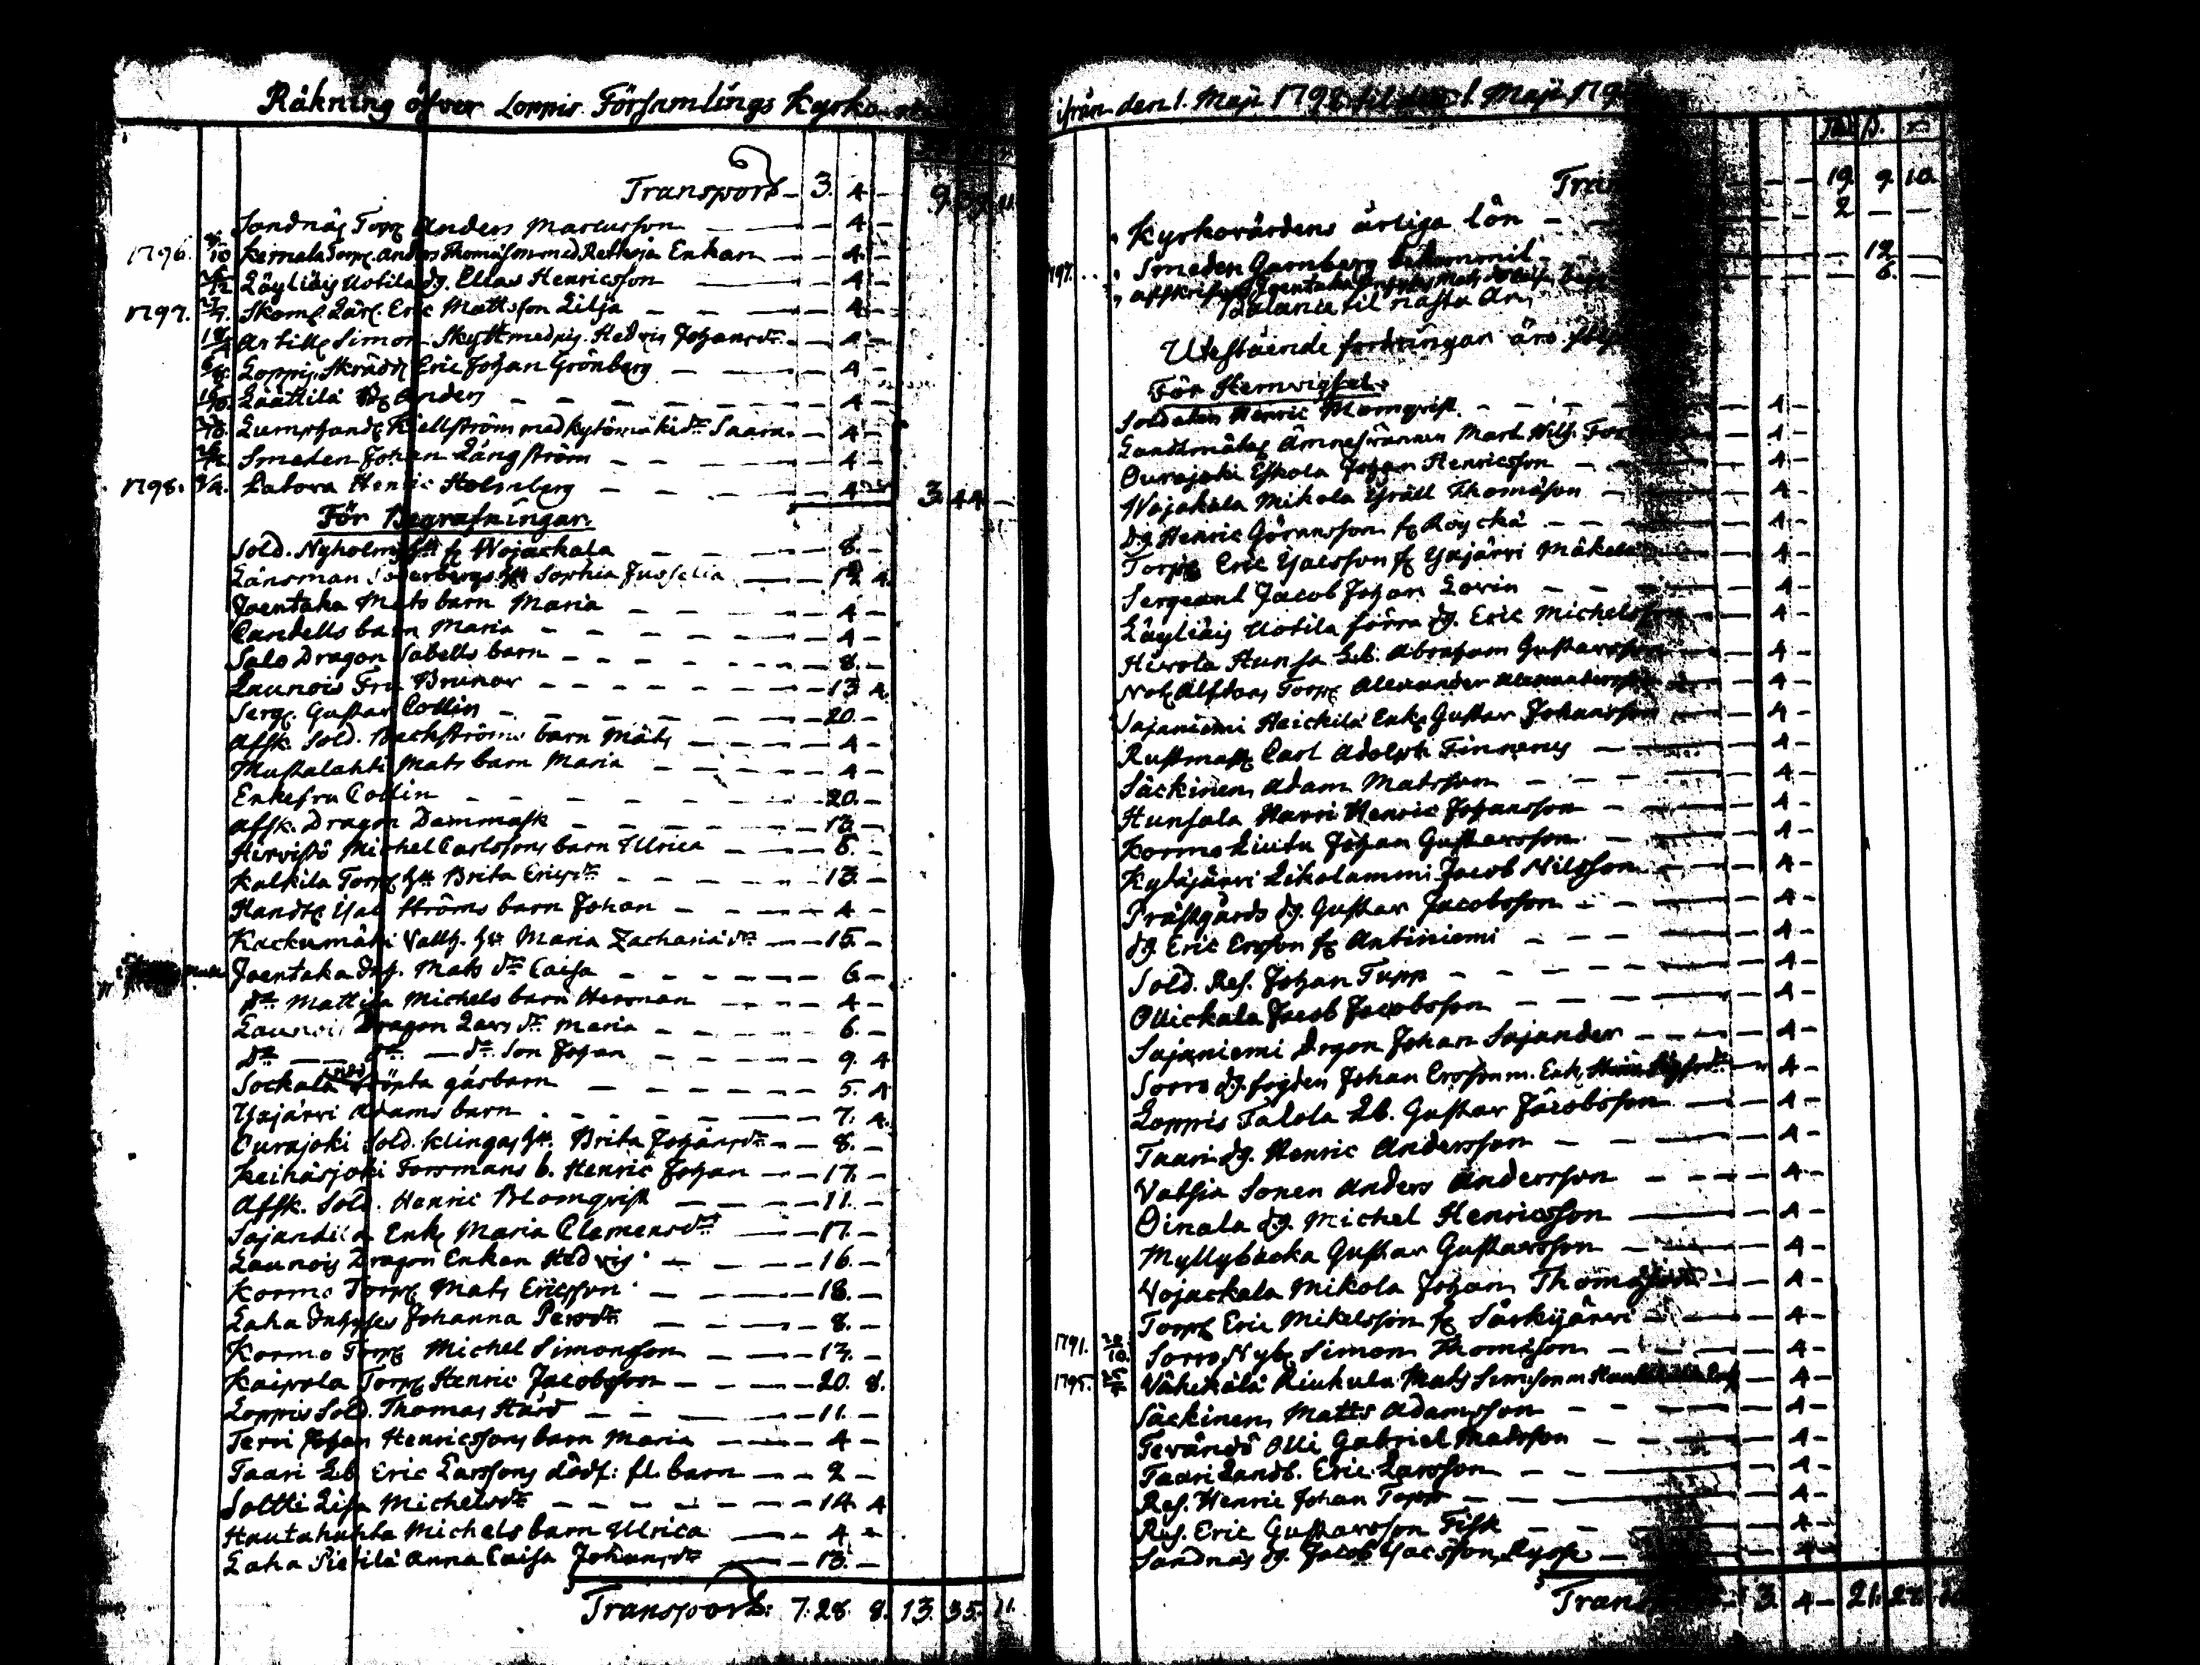 Räkning öfver Loppis Församlings Kyrko
Transport - 3. 4 - 9.
Sandnäs Torp Anders Marcusson - 4 -
1796. Kernala Torp. Anders Thomasson med Enkan - 4 -
Läyliäis Uotila dg. Elias Henricsson - 4 -
1797. Skom. Lär. Eric Mattsson Lilja - 4 -
Artill. Simon Skytt med pig. Hedvis Johansdr. - 4 -
Loppis Skrädd. Eric Johan Grönberg - 4 -
Läättilä dr. Anders - 4 -
Lumphand. Kiellström med Kytömäki dr. Saara - 4 -
Smeden Johan Långström - 4 -
1798. Henric Holmberg - 4 - 3. 44 -
För Begrafningar.
Sold. Nyholms Hu fr. Wojackala - 8. -
Länsman Söderbergs Hu Sophia - 12 4.
Joentaka Mats barn Maria - 4 -
Candells barn Maria - 4 -
Salo Dragon Sabells barn - 8. -
Launois Fru Brunor - 13 4.
Serg. Gustav Collin - 20. -
Afsk. Sold. Backströms barn Mats - 4 -
Mustalahti Mats barn Maria - 4 -
Enkefru Collin - 20. -
Afsk. Dragon Dammask - 13. -
Hirvistö Michel Carlssons barn Ullrica - 5. -
Kalkila Torp. Hu Brita Ericsdr. - 13. -
Handtv. Isac Ströms barn Johan - 4 -
Kackumäki Vallh. Hu Maria Zachariædr. - 15. -
Joentaka Inh. Mats dr. Caisa - 6 -
do. Mattila Michels barn Herman - 4 -
Launois Dragon Lars dr. Maria - 6. -
do. do. do. Son Johan - 9. 4
Sockala gåsbarn - 5. 4
Yajärvi Adams barn - 7. 4.
Ourajoki Sold. Klingas Hu. Brita Johansdr. - 8. -
Keihäsjoki Forsmans b. Henric Johan - 17. -
Afsk. Sold. Henric Blomqvist - 11. -
Enk. Maria Clemensdr. - 17. -
Launois Dragon Enkan Hedvis - 16. -
Kormo Torp. Mats Ericsson - 18. -
Laha Inhyses Johanna Persdr. - 8. -
Kormo Torp. Michel Simonsson - 13. -
Kaipola Torp. Henric Jacobsson - 20. 8.
Loppis Sold. Thomas Hård - 11. -
Tervi Johan Henricssons barn Maria - 4 -
Taari Lb. Eric Larssons dödf: fl. barn - 2 -
Soltti Lisa Michelsdr. - 14. 4
Hautahuhta Michels barn Ullrica - 4 -
Laha Pietilä Anna Caisa Johansdr. - 13. -
Transport: 7. 28. 8. 13. 35. 11.
ifrån den 1. Maji 1798 til den 1. Maji 179
19. 9. 10.
Kyrkovärdens årliga lön - 2 - -
Smeden Garnberg - 12. -
1797. - 6. -
Balance til nästa År
Utestående fordringar äro
För Hemvigsel.
Soldaten Henric Blomqvist - 4 -
Landtmät. Ämnesvännen - 4 -
Ourajoki Eskola Johan Henricsson - 4 -
Wojakala Mikola Israël Thomasson - 4 -
dg. Henric Göransson fr. Royckä - 4 -
Torp. Eric Isacsson fr. Yajärvi Mäkelä - 4 -
Sergeant Jacob Johan Lovin - 4 -
Läyliäis Uotila förra dg. Eric Michelsson - 4 -
Hevola Hunsa Lb. Abraham Gustavsson - 4 -
Torp. Alexander Alexandersson - 4 -
Sajaniemi Heickilä Enk. Gustav Johansson - 4 -
Rustmäst. Carl Adolph Finneny - 4 -
Säckinen Adam Matsson - 4 -
Hunsala Harri Henric Johansson - 4 -
Kormo Liutu Johan Gustavsson - 4 -
Kytäjärvi Likolammi Jacob Nilsson - 4 -
Prästgårds dg. Gustav Jacobsson - 4 -
dg. Eric Ersson fr. Antiniemi - 4 -
Sold. Res. Johan Topp - 4 -
Ollickala Jacob Jacobsson - 4 -
Sajaniemi Drgon Johan Sajander - 4 -
Sorro dg. fogden Johan Ersson m. Enk. - 4 -
Loppis Talola Lb. Gustav Jacobsson - 4 -
Taari dg. Henric Andersson - 4 -
Vatsia Sonen Anders Andersson - 4 -
Oinala dg. Michel Henricsson - 4 -
Myllybacka Gustav Gustavsson - 4 -
Vojackala Mikola Johan Thomasson - 4 -
Torp. Eric Mikelsson fr. Särkijärvi - 4 -
1791. Sorro Nyb. Simon Thomasson - 4 -
1795. Vähikälä Riukula Mats Simsson m - 4 -
Säckinen Matts Adamsson - 4 -
Terändö Olli Gabriel Matsson - 4 -
Taari Landb. Eric Larsson - 4 -
Res. Henric Johan Topp - 4 -
Res. Eric Gustavsson Fisk - 4 -
Sandnäs dg. Jacob Isacsson - 4 -
3. 4 - 21.